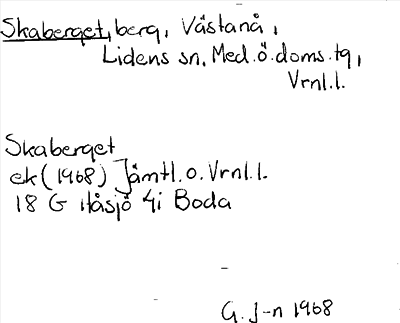 Skaberget, berg, Västanå,
Lidens sn, Med.ö.doms.tg,
Vrnl.l.
Skaberget
ek (1968) Jämtl.o.Vrnl.l.
18 G Håsjö 4i Boda
G. J-n 1968